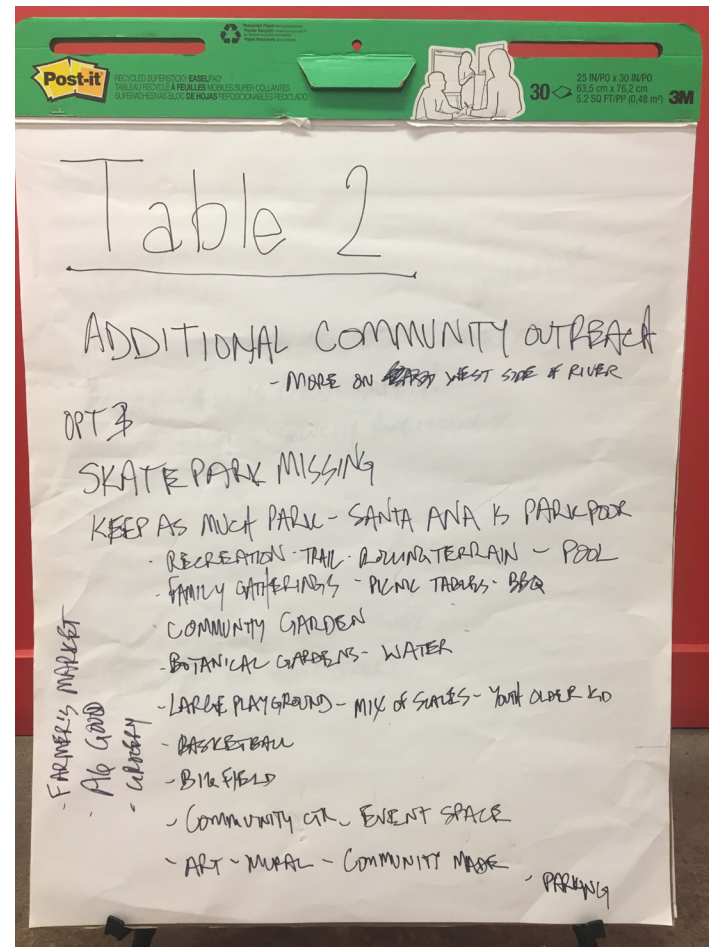 Post-it
RECYCLED SUPERSTICKY EASELPAD
TABLEAU RECYCLÉ À FEUILLES MOBILES SUPER COLLANTES
SUPERADHESIVAS BLOC DE HOJAS REPOSICIONABLES RECICLADO
30
25 IN/PO x 30 IN/PO
63,5 cm x 76,2 cm
5.2 SQ FT/PI² (0,48 m²)
3M
Table 2
ADDITIONAL COMMUNITY OUTREACH
- MORE ON WEST SIDE OF RIVER
OPT 3
SKATE PARK MISSING
KEEP AS MUCH PARK - SANTA ANA IS PARK POOR
· RECREATION · TRAIL · ROLLING TERRAIN - POOL
- FAMILY GATHERINGS - PICNIC TABLES - BBQ
- COMMUNITY GARDEN
- BOTANICAL GARDENS - WATER
- LARGE PLAYGROUND - MIX OF SCALES - YOUTH OLDER KID
- BASKETBALL
- BIG FIELD
- COMMUNITY CTR - EVENT SPACE
- ART - MURAL - COMMUNITY MADE
- PARKING
- FARMER'S MARKET
· AG GOOD
· GROCERY